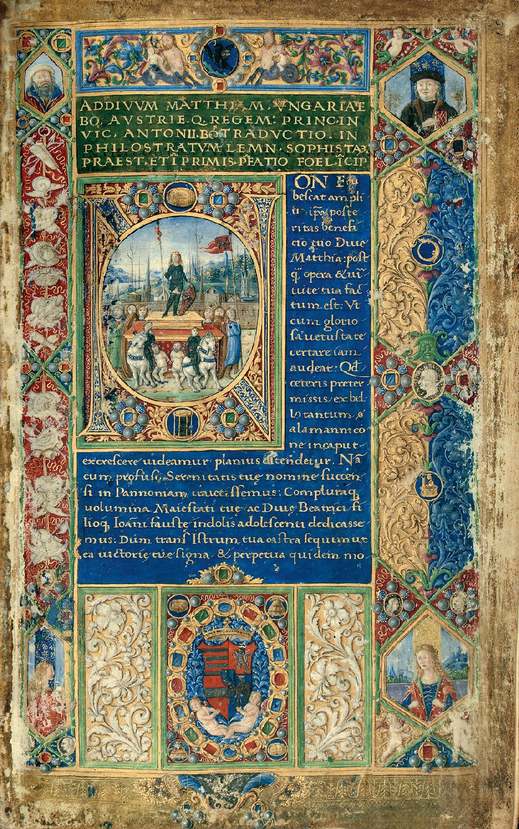 AD DIVVM MATTHIAM. VNGARIAE
BO. AVSTRIE. Q. REGEM: PRINC. IN
VIC. ANTONII. BO TRADVCTIO. IN
PHILOSTRATVM. LEMN. SOPHISTAM
PRAEST. ET I PRIMIS. PFATIO FOEL. ICIP
ON
bescat ampli
ritas benefi
cio tuo Diue
Matthia: post
opera & uir
tute tua fac
tum est: Vt
cum glorio
sa uetustate
certare iam
audeat: Qd
ceteris preter
missis ex bel
lo tantum
alamannico
ne in caput
excrescere uideamur planius ostendetur. Na
cum profusis Serenitatis tue nomine succen
si in Pannoniam traiecissemus: Compluraq
uolumina Maiestati tue ac Diue Beatrici fi
lioq, Ioani fauste indolis adolescenti dedicasse
mus: Dum trans Istrum tua castra sequimur
ea uictorie tue signa, & perpetua quidem mo